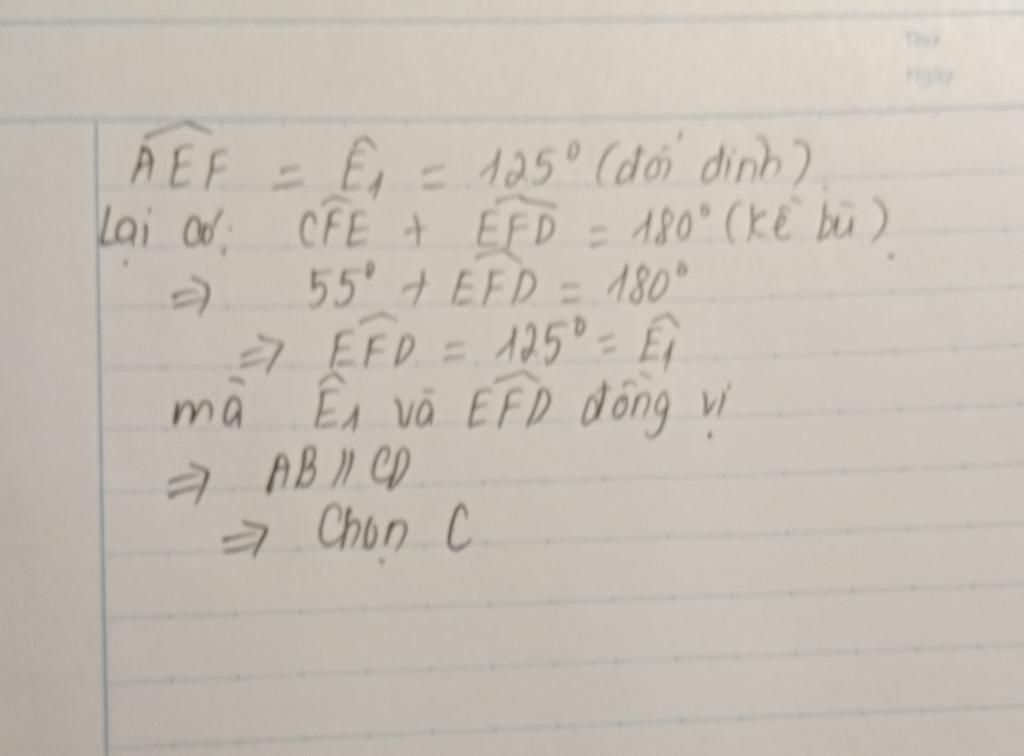 Thứ
Ngày
$\widehat{AEF} = \widehat{E}_1 = 125^0$ (đối đỉnh)
Lại có: $\widehat{CFE} + \widehat{EFD} = 180^0$ (kề bù)
$\Rightarrow 55^0 + \widehat{EFD} = 180^0$
$\Rightarrow \widehat{EFD} = 125^0 = \widehat{E_1}$
mà $\widehat{E}_1$ và $\widehat{EFD}$ đồng vị
$\Rightarrow$ AB // CD
$\Rightarrow$ Chọn C